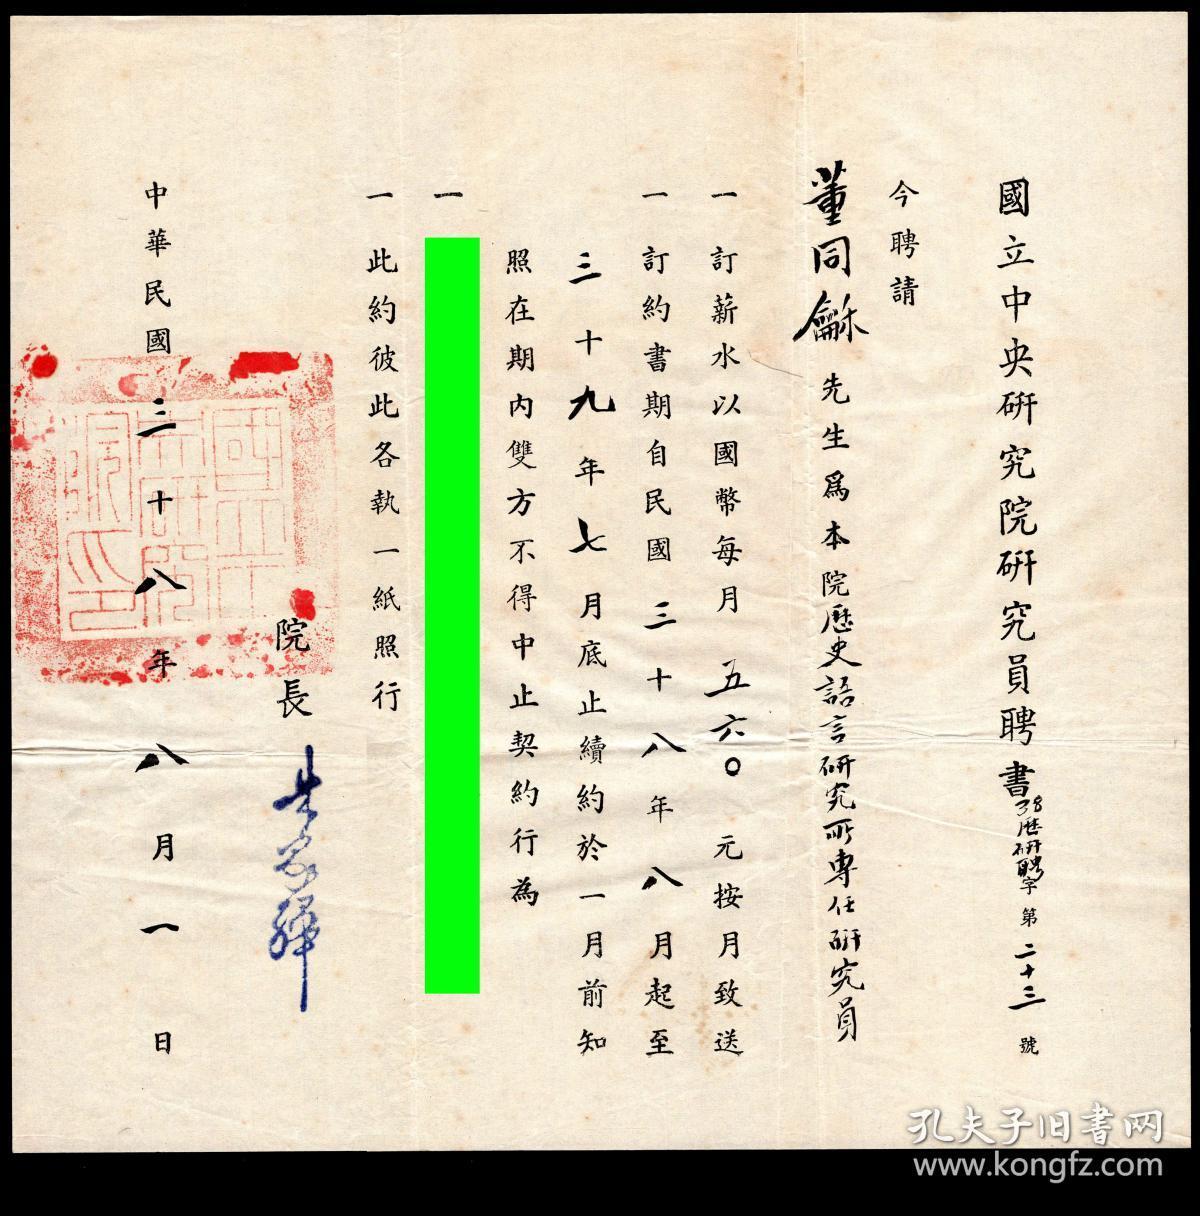 國立中央研究院研究員聘書 38歷研聘字第二十三號
今聘請
董同龢先生爲本院歷史語言研究所專任研究員
一 訂薪水以國幣每月五六〇元按月致送
一 訂約書期自民國三十八年八月起至
三十九年七月底止續約於一月前知
照在期內雙方不得中止契約行為
一
一 此約彼此各執一紙照行
院長 朱家驊
中華民國三十八年八月一日
孔夫子旧书网
www.kongfz.com